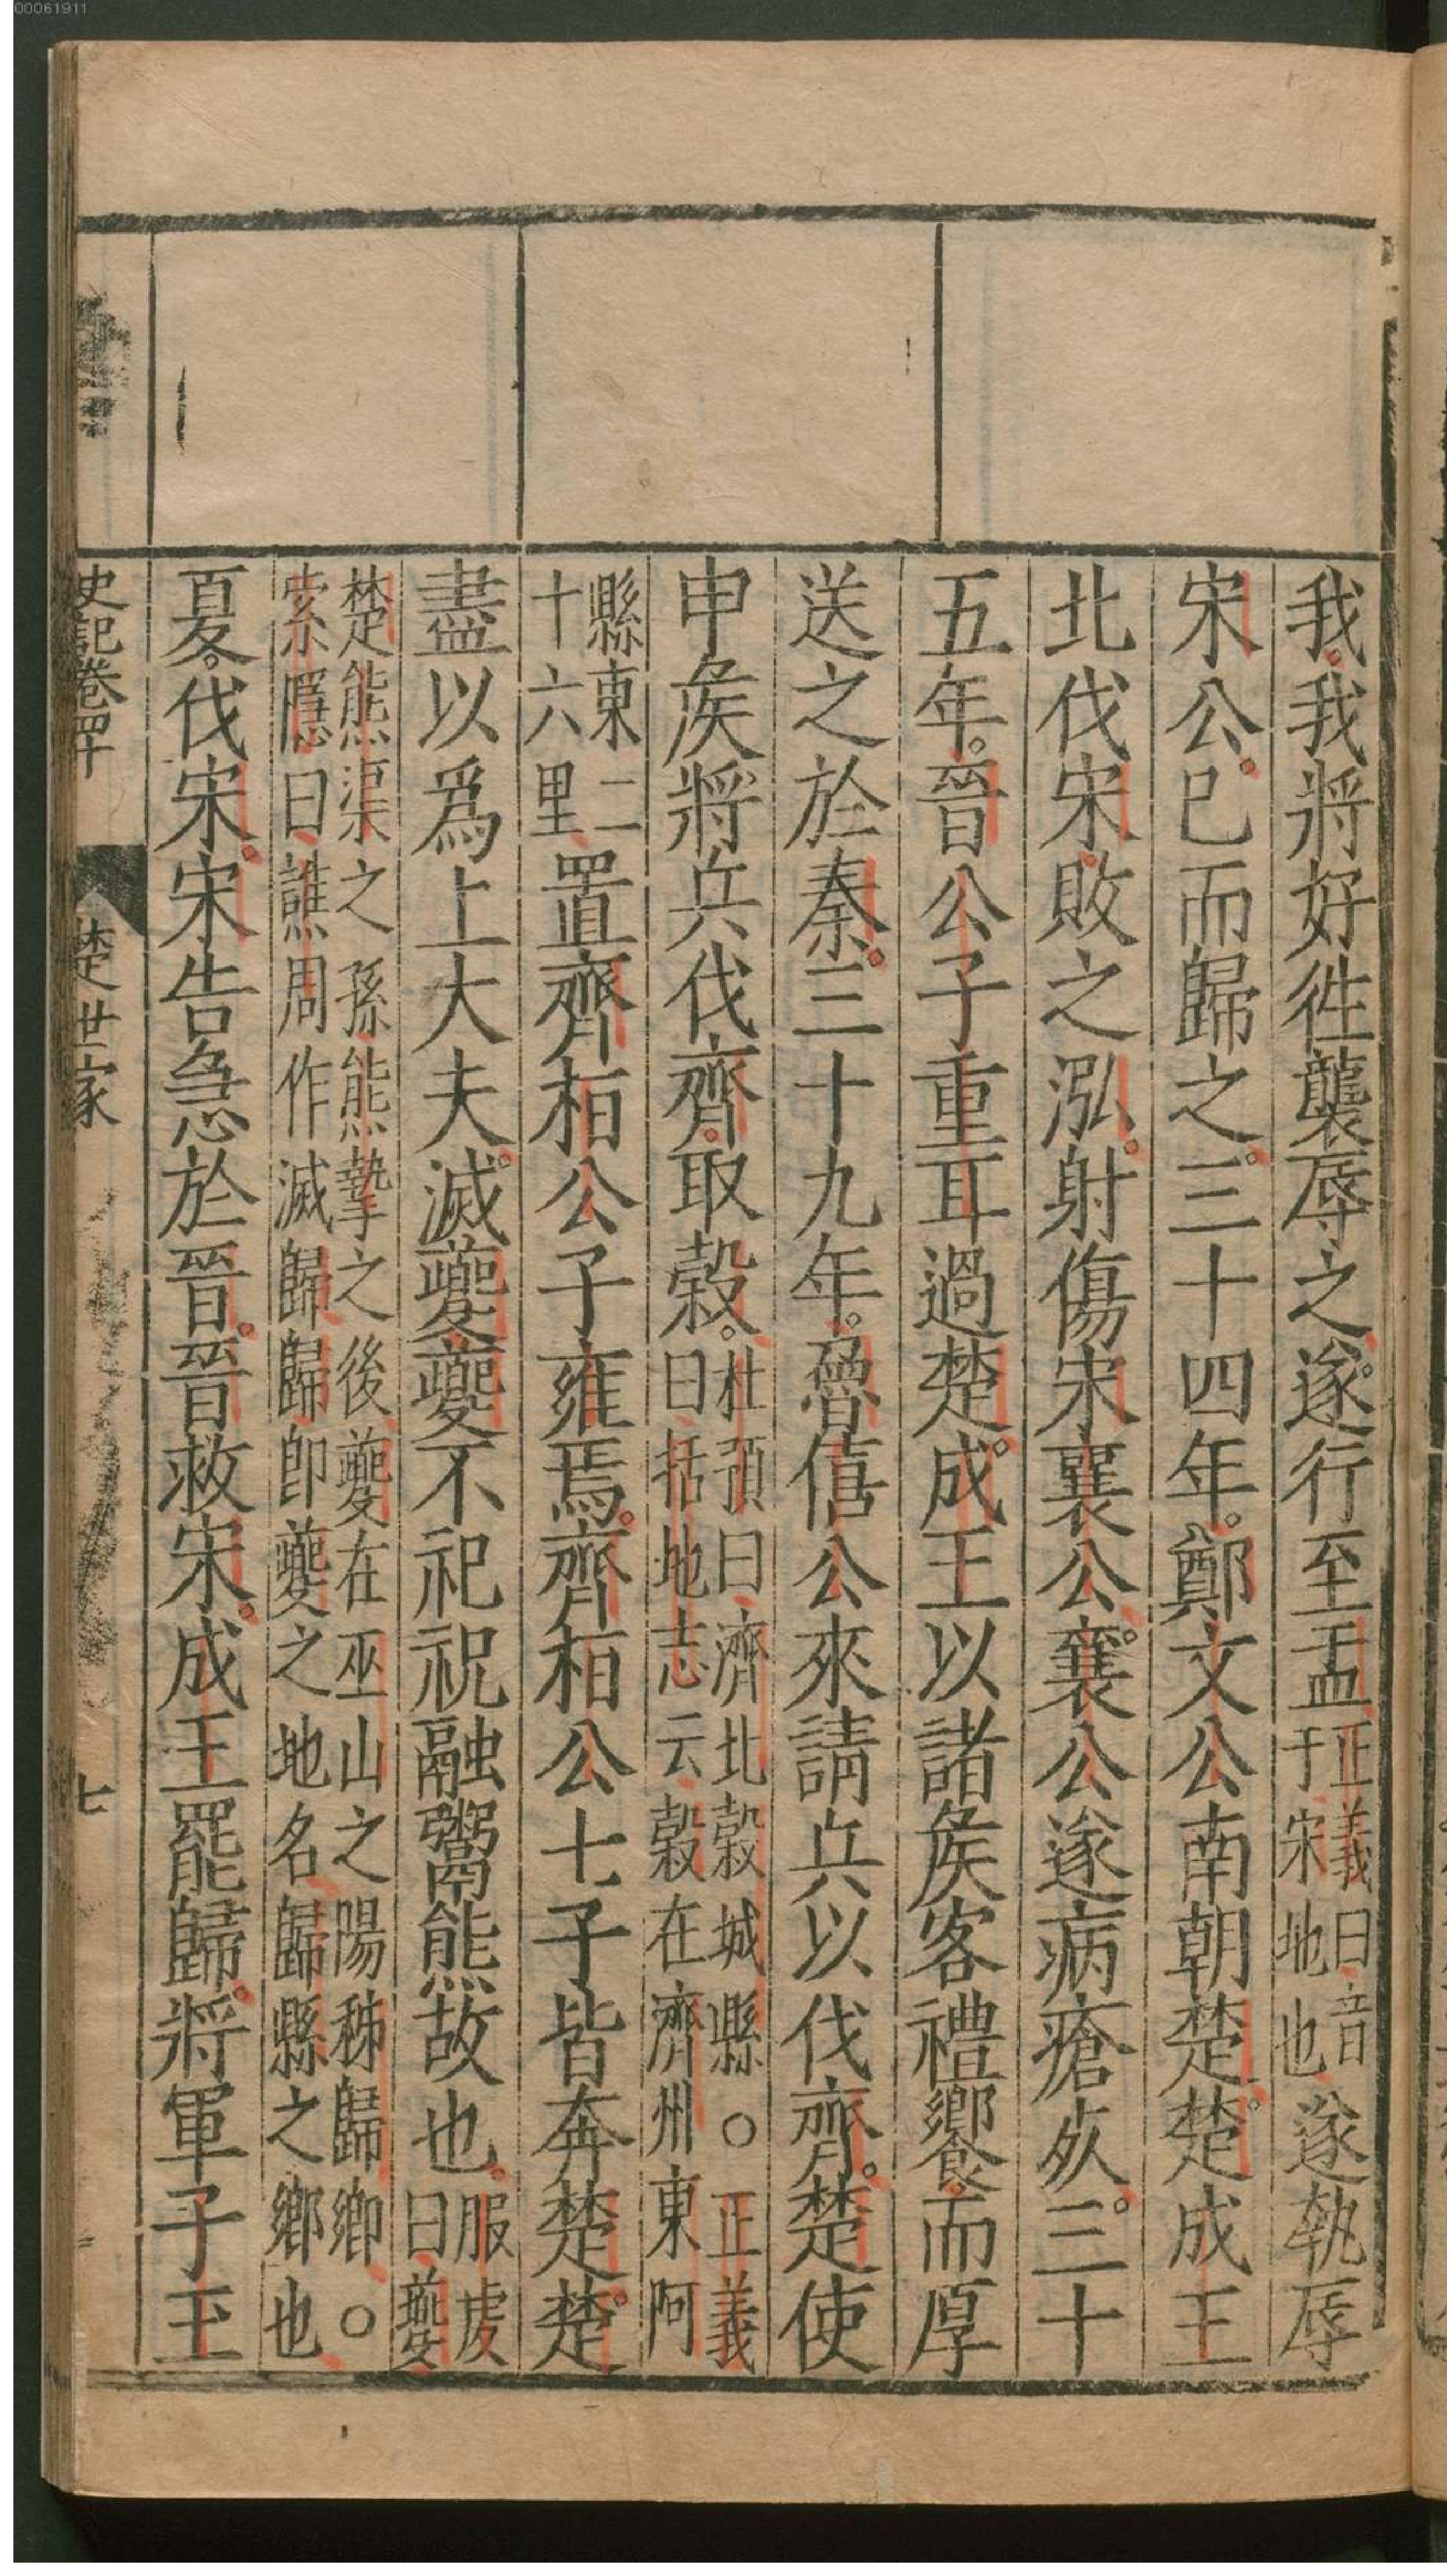 00061911
我我將好徃襲辱之遂行至盂正義曰音于宋地也遂執辱
宋公已而歸之三十四年鄭文公南朝楚楚成王
北伐宋敗之泓射傷宋襄公襄公遂病瘡死三十
五年晉公子重耳過楚成王以諸矦客禮饗而厚
送之於秦三十九年魯僖公來請兵以伐齊楚使
申矦將兵伐齊取榖杜預曰濟北榖城縣○正義曰括地志云榖在濟州東阿
縣東二十六里置齊桓公子雍焉齊桓公七子皆奔楚楚
盡以爲上大夫滅夔夔不祀祝融鬻熊故也服虔曰夔
楚熊渠之孫熊摯之後夔在巫山之陽秭歸鄉○索隱曰譙周作滅歸歸卽夔之地名歸縣之鄉也
夏伐宋宋告急於晉晉救宋成王罷歸將軍子玉
史記卷四十 楚世家 七